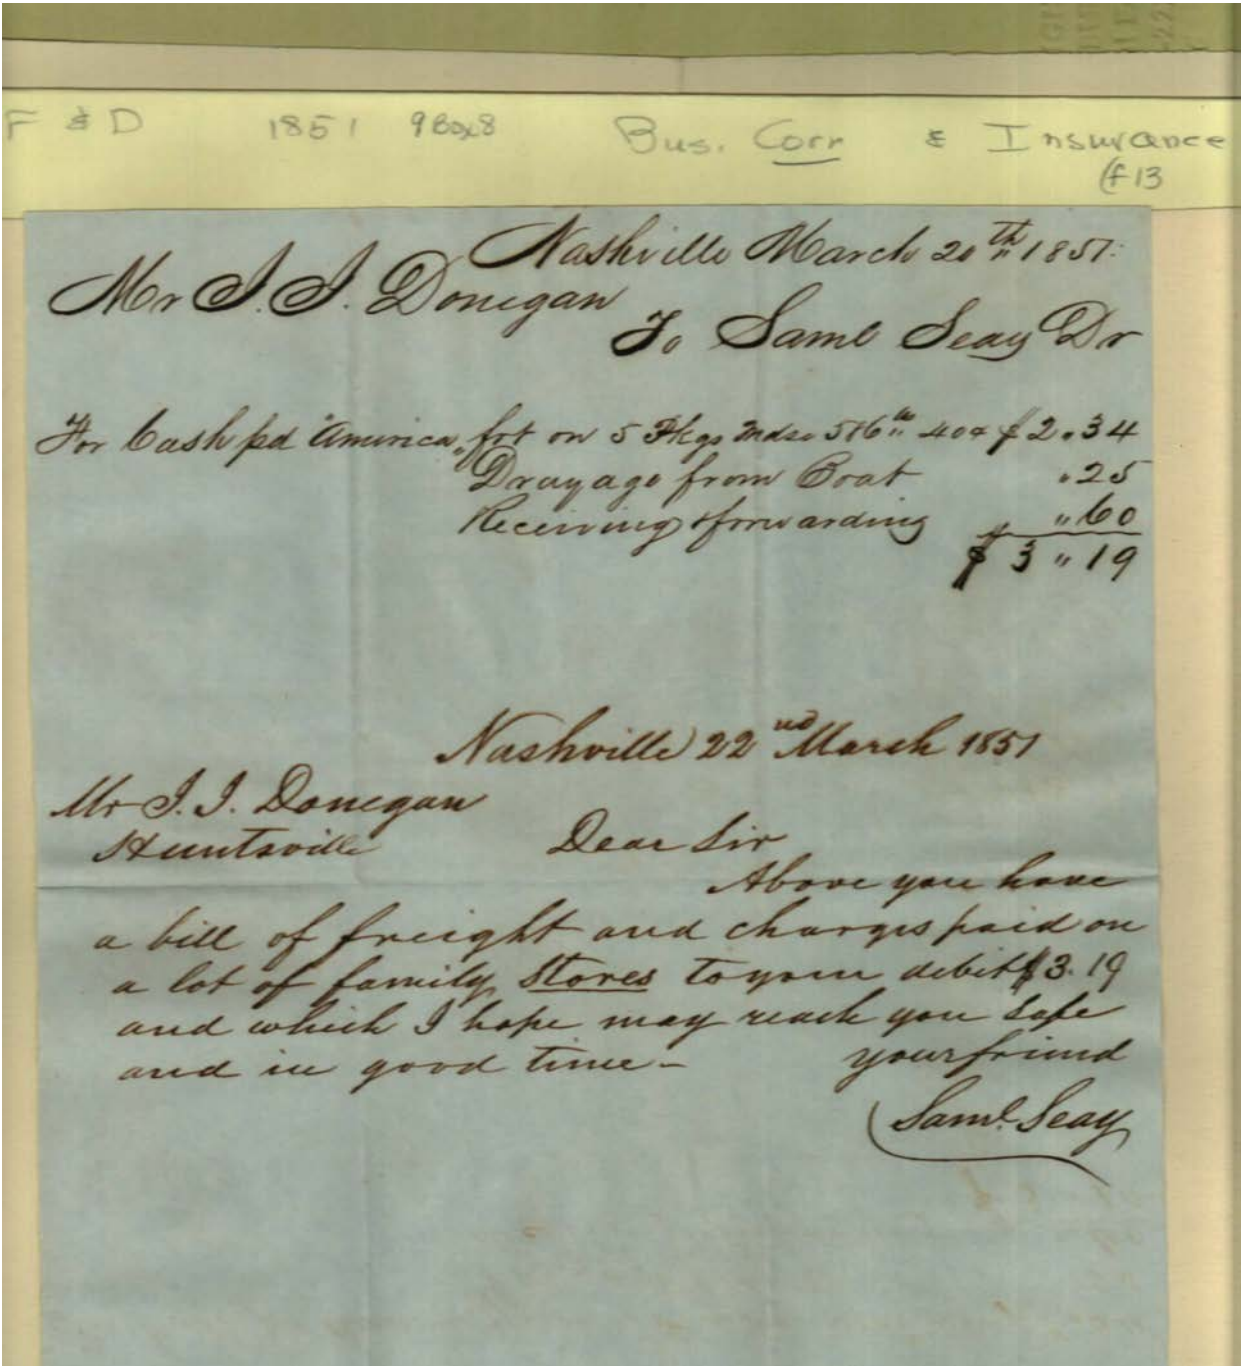 F & D 1851 9Box8 Bus. Corr & Insurance
(f 13
Nashville March 20th 1851.
Mr J. J. Donegan
To Saml Seay Dr
For Cash pd "America" frt on 5 Pkgs Mdse 586 lbs 40¢ $2.34
Drayage from Boat .25
Receiving & forwarding "60
$3"19
Nashville 22nd March 1851
Mr J. J. Donegan
Huntsville Dear Sir
Above you have
a bill of freight and charges paid on
a lot of family Stores to your debit $3.19
and which I hope may reach you safe
and in good time -
your friend
Saml. Seay